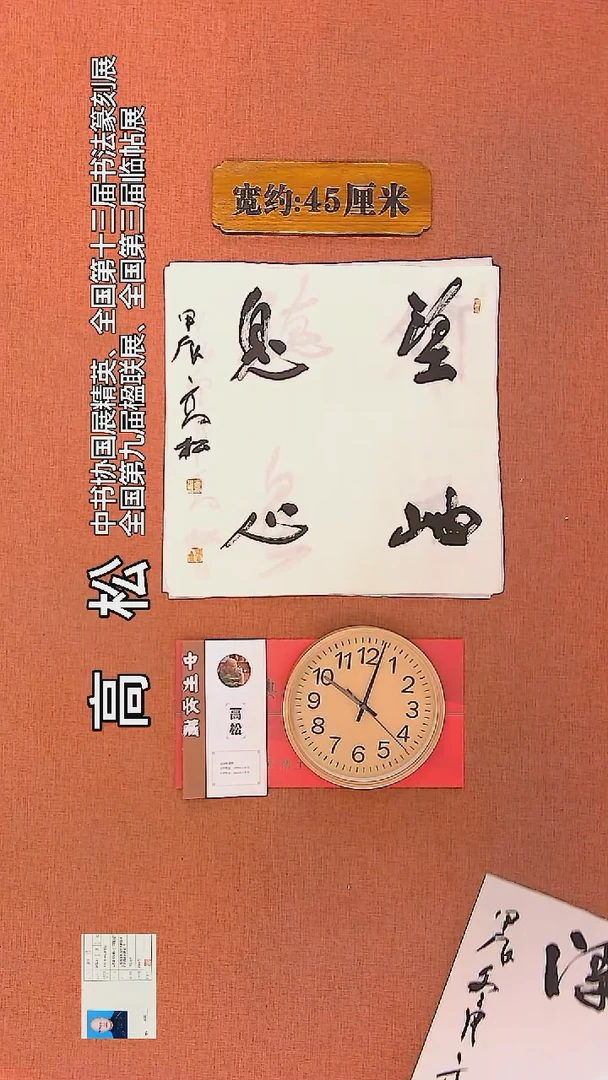 高松
中书协国展精英、全国第十三届书法篆刻展
全国第九届楹联展、全国第三届临帖展
宽约:45厘米
望岫
息心
甲辰高松
高松
12
1
2
3
4
5
6
7
8
9
10
11
甲辰